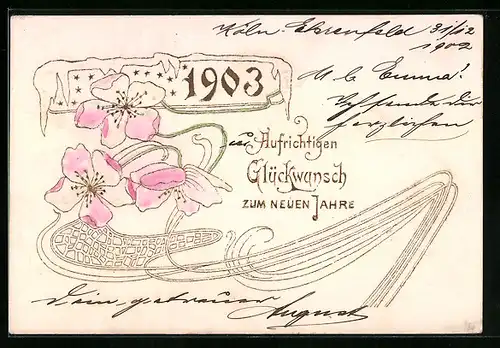 Köln-Ehrenfeld 31/12
1902
1903
M. l. Emma!
Ich sende dir
herzlichen
u. Aufrichtigen
Glückwunsch
ZUM NEUEN JAHRE
Dein getreuer
August